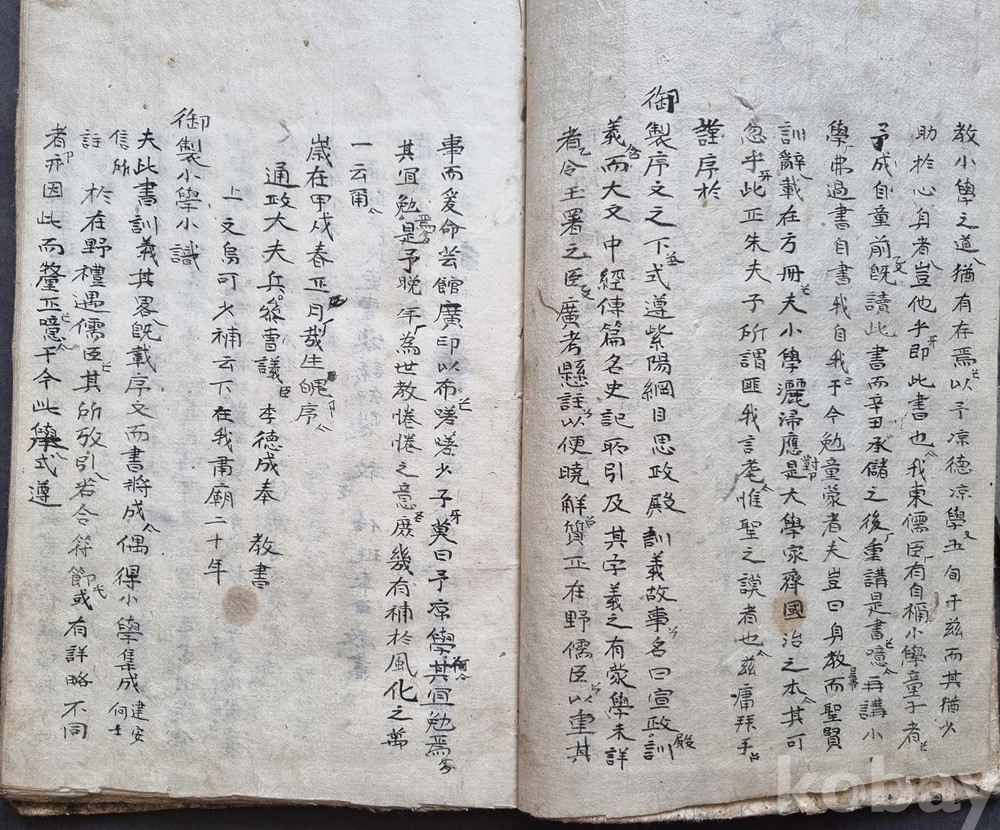 教小學之道猶有存焉以予凉德凉學五旬于玆而其猶少
助於心身者豈他乎即此書也我東儒臣有自稱小學童子者
予成自童前旣讀此書而辛丑承儲之後重講是書噫再講小
學弗過書自書我自我于今勉童蒙者夫豈曰身教而聖賢
訓辭載在方册夫小學灑掃應對是大學家齊國治之本其可
忽乎此正朱夫子所謂匪我言耄惟聖之謨者也玆庸拜手
謹序於
御製序文之下式遵紫陽綱目思政殿訓義故事名曰宣政殿訓
義而大文中經傳篇名史記所引及其字義之有蒙學未詳
者令玉署之臣廣考懸註以便曉解質正在野儒臣以重其
事而爰命芸館廣印以布嗟嗟少子莫曰予凉學其宜勉焉
其宜勉焉是予晚年為世教惓惓之意庶幾有補於風化之萬
一云爾
歲在甲戌春正月哉生魄序
通政大夫兵曹參議臣李德成奉 教書
上文烏可大補云下在我肅廟二十年
御製小學小識
夫此書訓義其畧旣載序文而書將成偶得小學集成建安何士
信所註於在野禮遇儒臣其所攷引若合符節或有詳略不同
者亦因此而釐正噫于今此學式遵
kobay